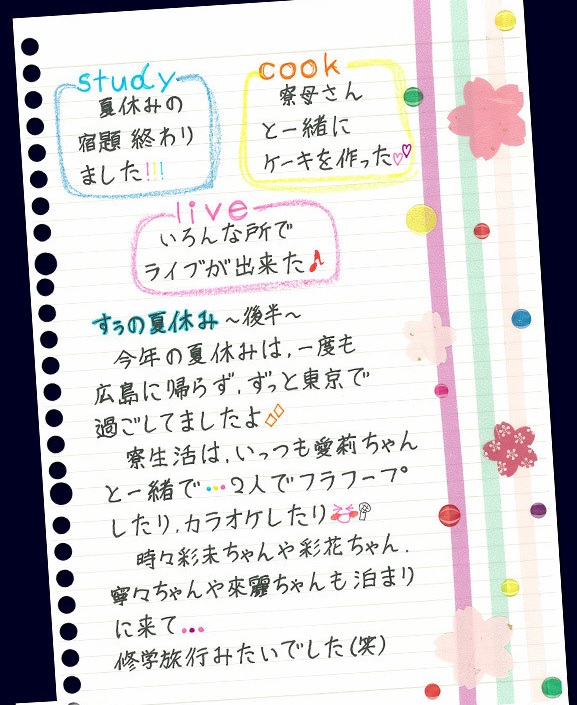 study
夏休みの
宿題 終わり
ました!!!
cook
寮母さん
と一緒に
ケーキを作った♡♡
live
いろんな所で
ライブが出来た♪
すぅの夏休み ～後半～
今年の夏休みは、一度も
広島に帰らず、ずっと東京で
過ごしてましたよ
寮生活は、いっつも愛莉ちゃん
と一緒で…2人でフラフープ
したり、カラオケしたり
時々彩未ちゃんや彩花ちゃん、
寧々ちゃんや來麗ちゃんも泊まり
に来て…
修学旅行みたいでした(笑)